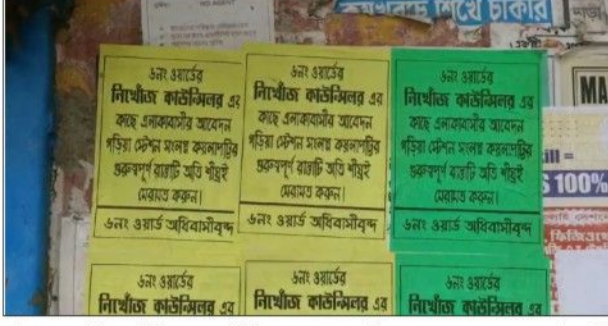 NO AGENT
শিখে চাকরি
৬নং ওয়ার্ডের
নিখোঁজ কাউন্সিলর এর
কাছে এলাকাবাসীর আবেদন
গড়িয়া স্টেশন সংলগ্ন কয়লাপট্টির
গুরুত্বপূর্ণ রাস্তাটি অতি শীঘ্রই
মেরামত করুন।
৬নং ওয়ার্ড অধিবাসীবৃন্দ
৬নং ওয়ার্ডের
নিখোঁজ কাউন্সিলর এর
কাছে এলাকাবাসীর আবেদন
গড়িয়া স্টেশন সংলগ্ন কয়লাপট্টির
গুরুত্বপূর্ণ রাস্তাটি অতি শীঘ্রই
মেরামত করুন।
৬নং ওয়ার্ড অধিবাসীবৃন্দ
৬নং ওয়ার্ডের
নিখোঁজ কাউন্সিলর এর
কাছে এলাকাবাসীর আবেদন
গড়িয়া স্টেশন সংলগ্ন কয়লাপট্টির
গুরুত্বপূর্ণ রাস্তাটি অতি শীঘ্রই
মেরামত করুন।
৬নং ওয়ার্ড অধিবাসীবৃন্দ
MA
ill =
100%
৬নং ওয়ার্ডের
নিখোঁজ কাউন্সিলর এর
৬নং ওয়ার্ডের
নিখোঁজ কাউন্সিলর এর
৬নং ওয়ার্ডের
নিখোঁজ কাউন্সিলর এর